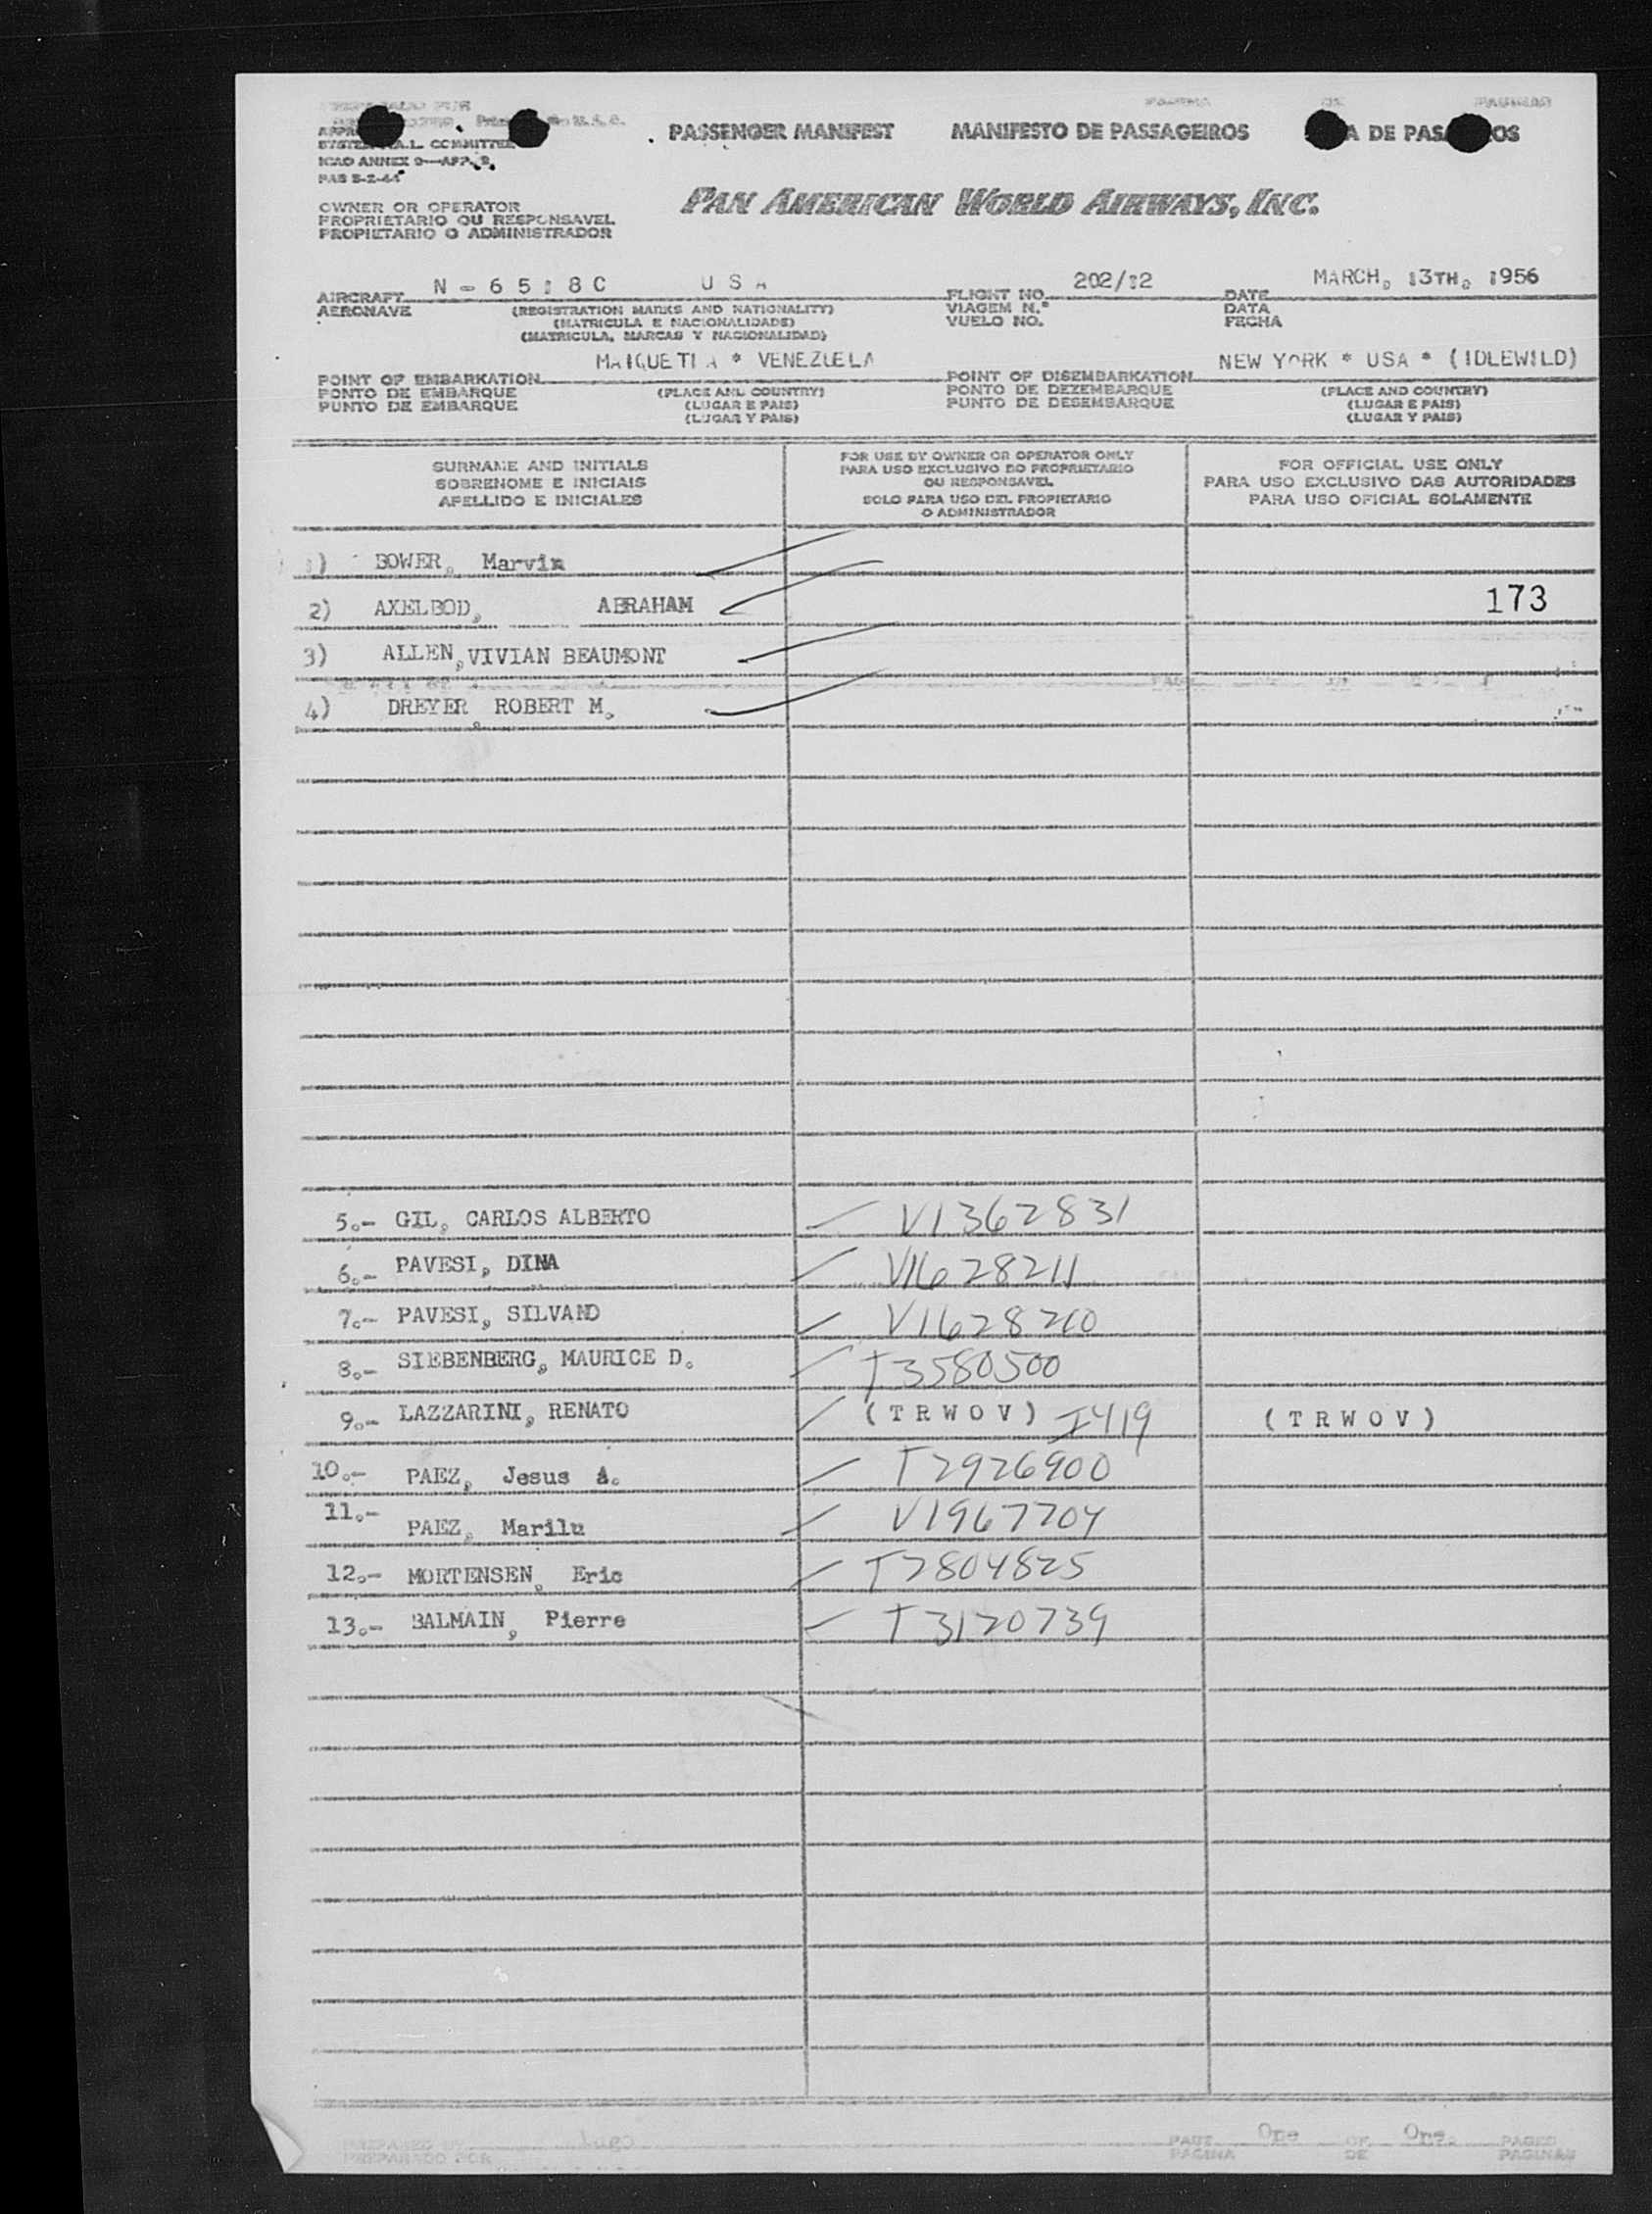 PASSENGER MANIFEST MANIFESTO DE PASSAGEIROS A DE PAS OS
SYSTEM A.L. COMMITTEE
ICAO ANNEX 9—APP. 2,
OWNER OR OPERATOR
PROPRIETARIO OU RESPONSAVEL
PROPIETARIO O ADMINISTRADOR
PAN AMERICAN WORLD AIRWAYS, INC.
AIRCRAFT N-6518C USA FLIGHT NO. 202/12 DATE MARCH, 13TH, 1956
AERONAVE (REGISTRATION MARKS AND NATIONALITY) VIAGEM N.º DATA
(MATRICULA E NACIONALIDADE) VUELO NO. FECHA
(MATRICULA, MARCAS Y NACIONALIDAD)
POINT OF EMBARKATION MAIQUETIA * VENEZUELA POINT OF DISEMBARKATION NEW YORK * USA * (IDLEWILD)
PONTO DE EMBARQUE (PLACE AND COUNTRY) PONTO DE DEZEMBARQUE (PLACE AND COUNTRY)
PUNTO DE EMBARQUE (LUGAR E PAIS) PUNTO DE DESEMBARQUE (LUGAR E PAIS)
(LUGAR Y PAIS) (LUGAR Y PAIS)
SURNAME AND INITIALS
SOBRENOME E INICIAIS
APELLIDO E INICIALES
FOR USE BY OWNER OR OPERATOR ONLY
PARA USO EXCLUSIVO DO PROPRIETARIO
OU RESPONSAVEL
SOLO PARA USO DEL PROPIETARIO
O ADMINISTRADOR
FOR OFFICIAL USE ONLY
PARA USO EXCLUSIVO DAS AUTORIDADES
PARA USO OFICIAL SOLAMENTE
1) BOWER, Marvin
2) AXELBOD, ABRAHAM 173
3) ALLEN, VIVIAN BEAUMONT
4) DREYER, ROBERT M.
5.- GIL, CARLOS ALBERTO V1362831
6.- PAVESI, DINA V1628211
7.- PAVESI, SILVANO V1628210
8.- SIEBENBERG, MAURICE D. T3580500
9.- LAZZARINI, RENATO (TRWOV) I419 (TRWOV)
10.- PAEZ, Jesus A. T2926900
11.- PAEZ, Marilu V1967704
12.- MORTENSEN, Eric T2804825
13.- BALMAIN, Pierre T3120739
PREPARED BY PAGE One OF One. PAGES
PREPARADO POR PAGINA DE PAGINAS